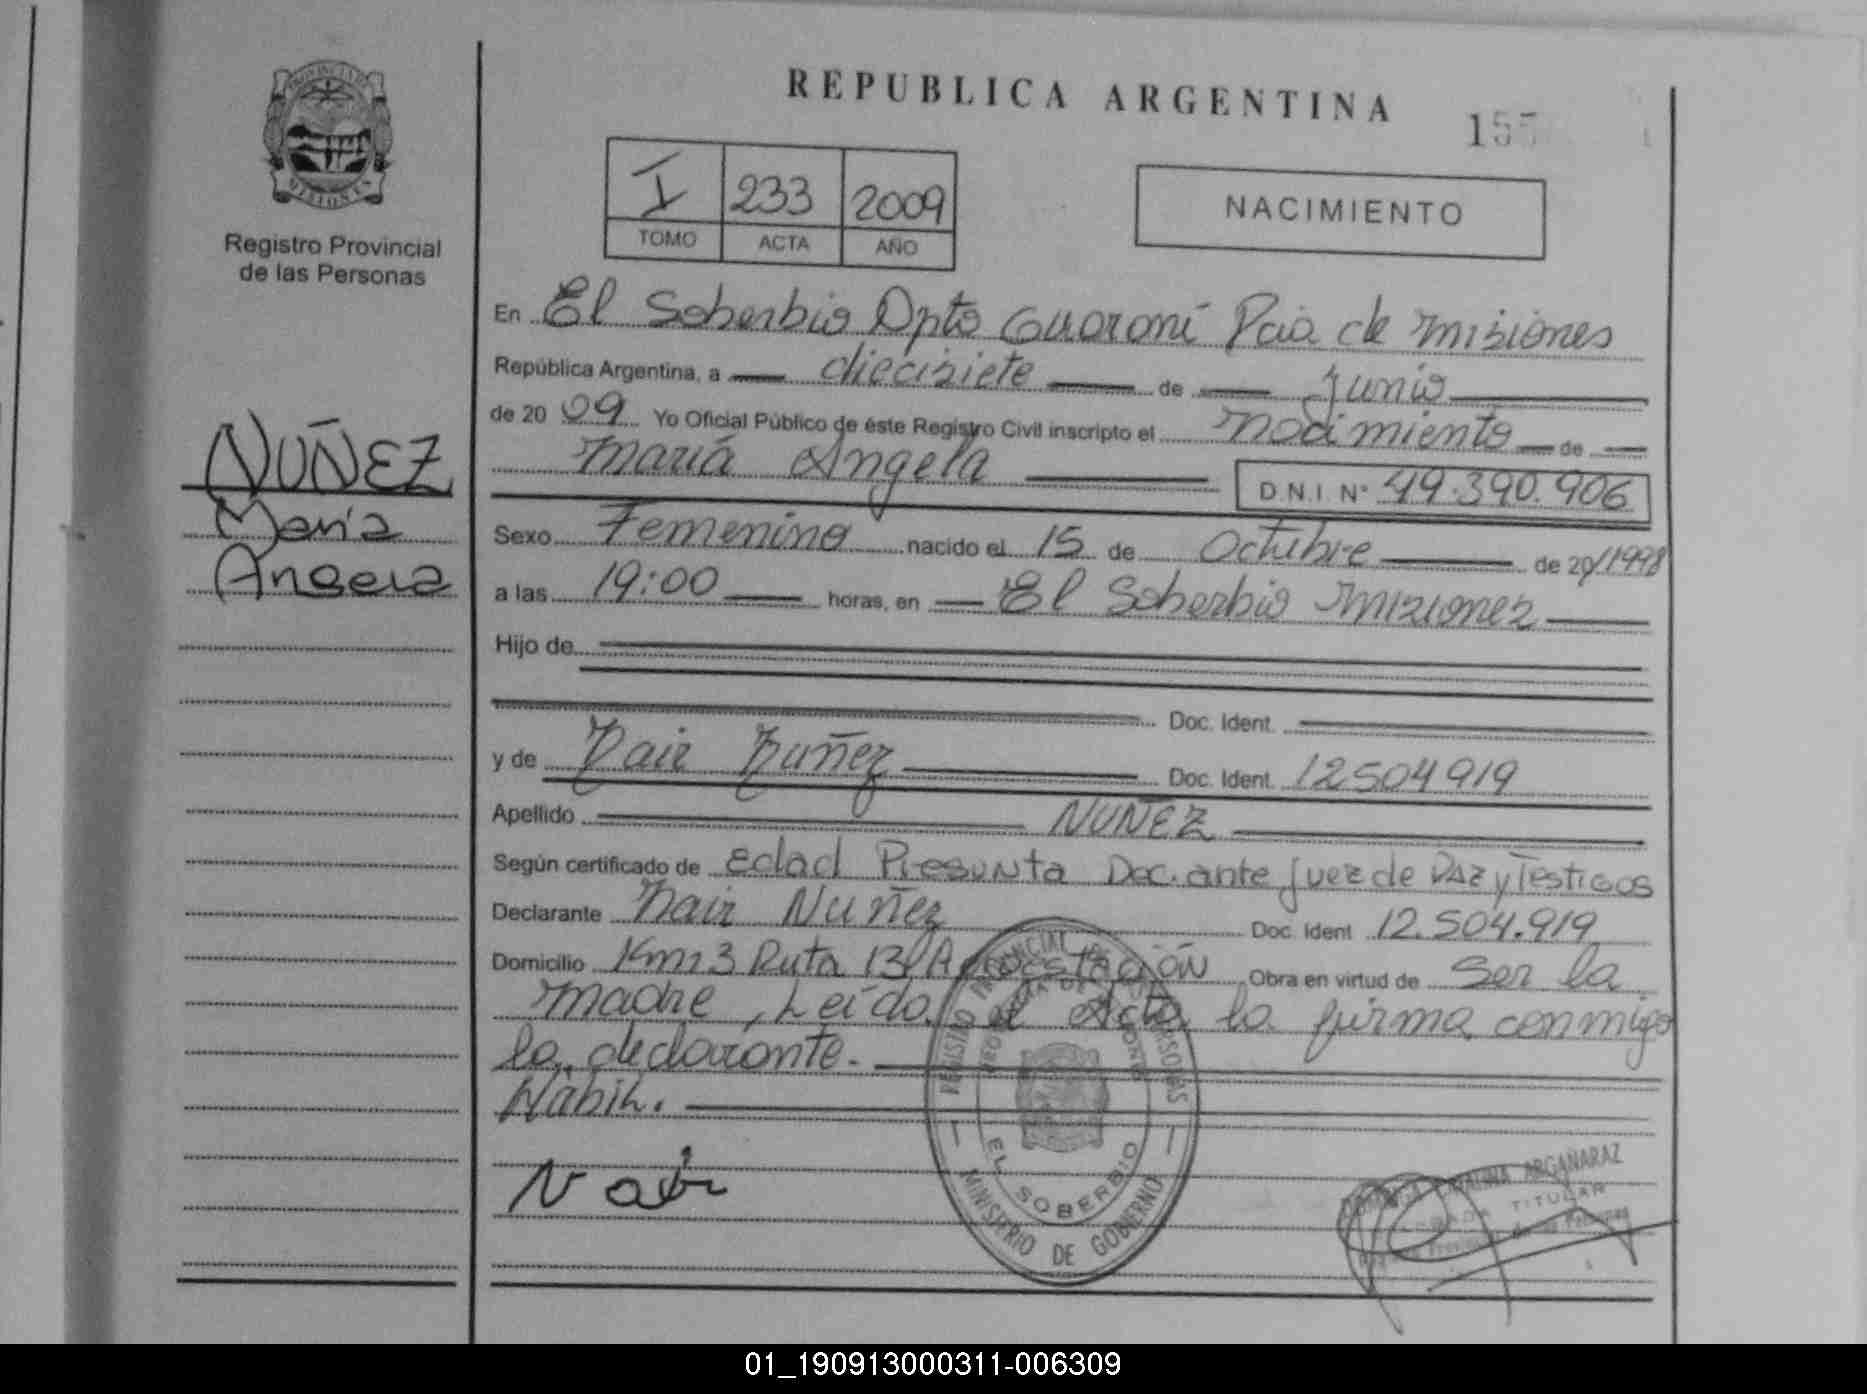 PROVINCIA DE
MISIONES
Registro Provincial
de las Personas
NUÑEZ
María
Angela
REPUBLICA ARGENTINA
155
I 233 2009
TOMO ACTA AÑO
NACIMIENTO
En El Soberbio Dpto Guaraní Pcia de misiones
República Argentina, a diecisiete de Junio
de 2009 Yo Oficial Público de éste Registro Civil inscripto el nacimiento de
María Angela D.N.I. Nº 49.390.906
Sexo Femenino nacido el 15 de Octubre de 20/1998
a las 19:00 horas, en El Soberbio Misiones
Hijo de
Doc. Ident.
y de Nair Nuñez Doc. Ident. 12504919
Apellido NUÑEZ
Según certificado de Edad Presunta Doc. ante Juez de Paz y Testigos
Declarante Nair Nuñez Doc. Ident 12.504.919
Domicilio Km 3 Ruta 13 Obra en virtud de Ser la
madre, Leída el Acta la firma conmigo
la declarante.
Nair
REGISTRO PROVINCIAL DE LAS PERSONAS
EL SOBERBIO
MINISTERIO DE GOBIERNO
ARGAÑARAZ
TITULAR
01_190913000311-006309